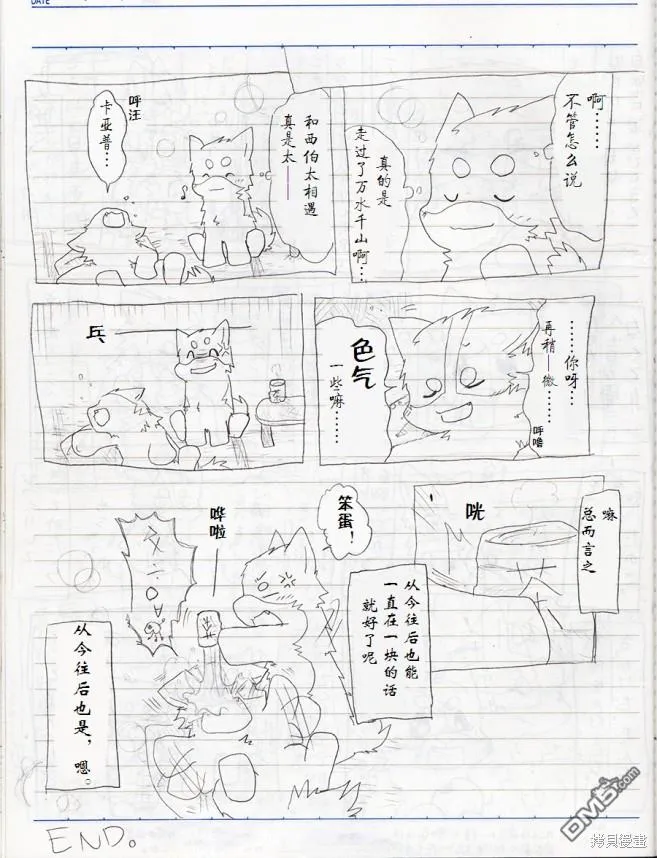 DATE
啊……
不管怎么说
真的是
走过了万水千山啊……
和西伯太相遇
真是太——
呼汪
卡亚普…
……你呀…
再稍—微……
呼噜
色气
一些嘛……
乓、
嘛
总而言之
咣
从今往后也能
一直在一块的话
就好了呢
笨蛋！
哗啦
从今往后也是，嗯。
END。
DM5.com
拷貝漫畫